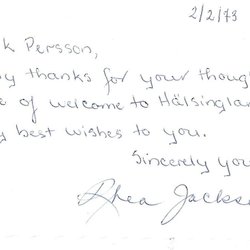 2/2/73
k Persson,
y thanks for your though
e of welcome to Hälsinglan
y best wishes to you.
Sincerely you
Rhea Jackso